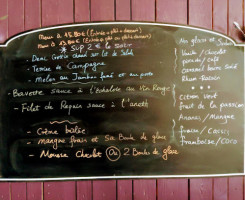 Menu à 15.80€ (Entrée + plat + dessert)
Menu à 13.80€ (Entrée + plat ou plat + dessert)
* SUP 2€ le Soir
- Demi Crottin chaud sur lit de Salade
- Terrine de Campagne
- Melon au Jambon fumé et au porto
- Bavette sauce à l'échalote au Vin Rouge
- Filet de Rapain sauce à l'aneth
- Crème brûlée
- mangue frais et sa Boule de glace
- Mousse Chocolat ou 2 Boules de glace
glace
Vanille / chocolat
café
caramel beurre salé
Rhum-Raisin
* * *
citron vert
fruit de la passion
Ananas / Mangue
fraise / Cassis
framboise / Coco